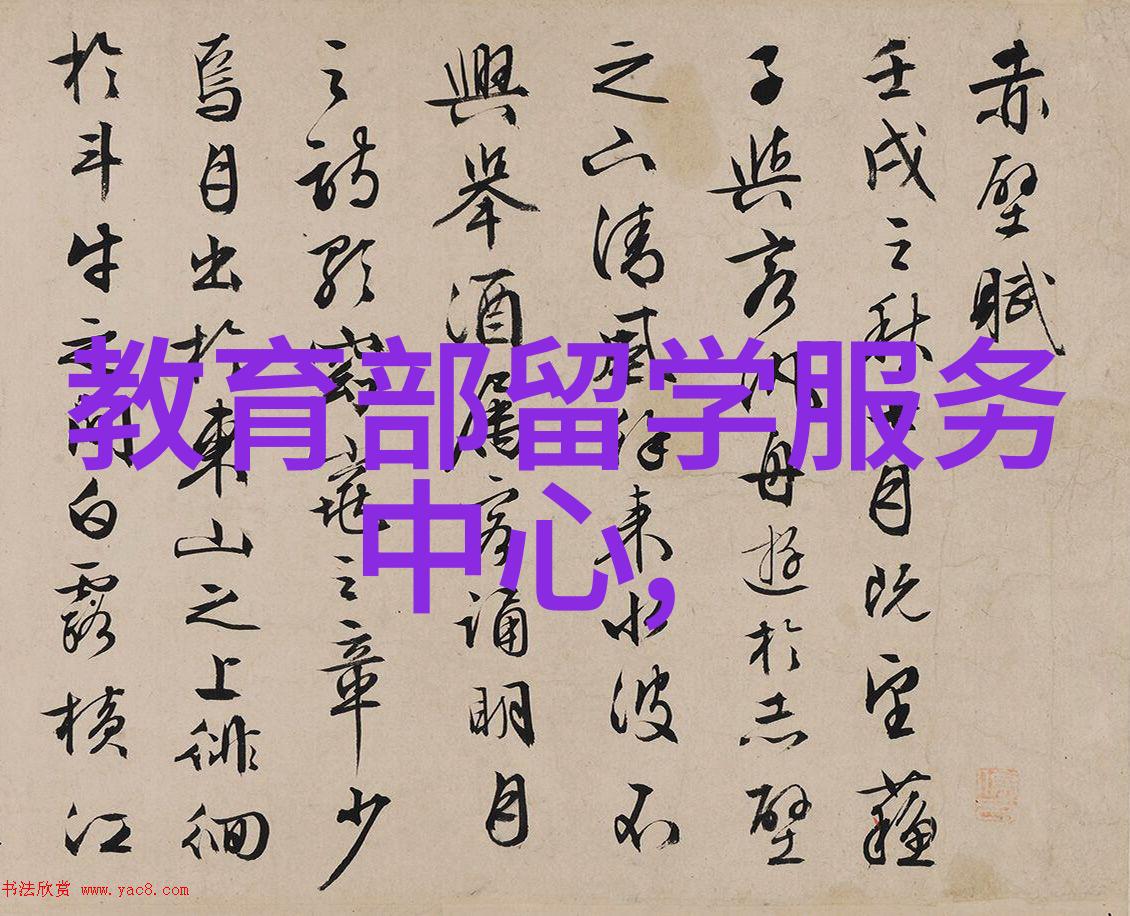 赤壁賦
壬戌之秋七月既望蘇
子與客泛舟遊於赤壁
之下清風徐來水波不
興舉酒屬客誦明月
之詩歌窈窕之章少
焉月出於東山之上徘徊
於斗牛之間白露橫江
教育部留学服务
中心，
书法欣赏 www.yac8.com